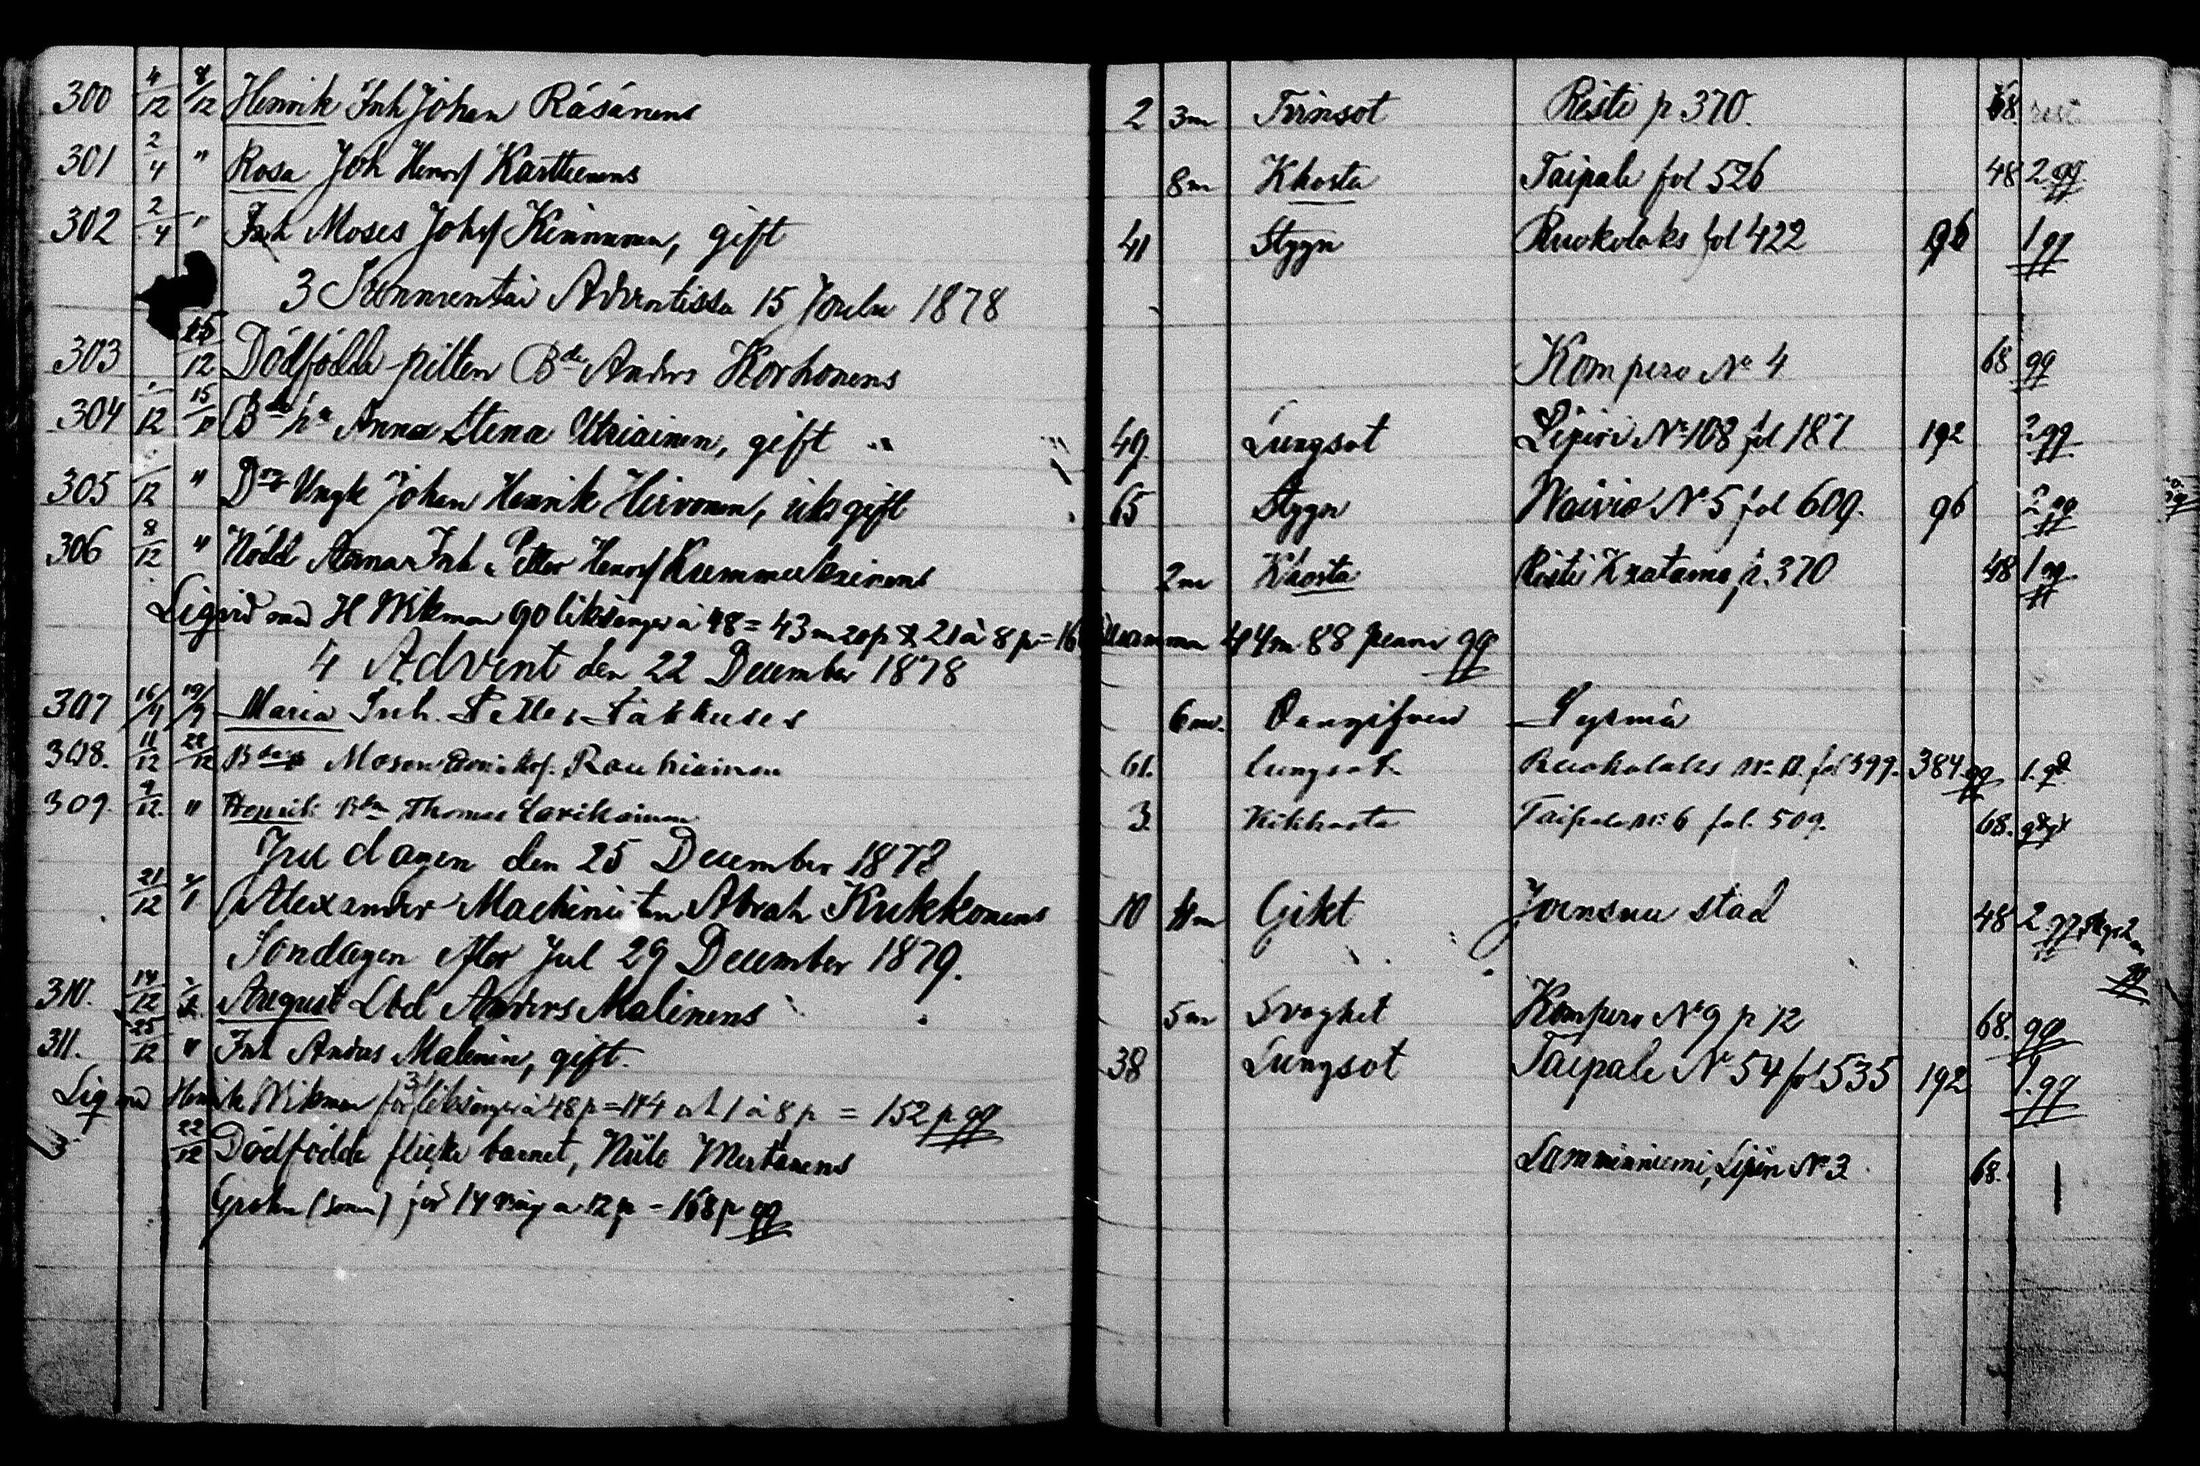 300 4/12 8/12 Henrik Inh Johan Räsänens 2 3m Tvinsot Risti p. 370. 68.
301 2/4 " Rosa Joh Henrsf Karttunens 8m Khosta Taipale fol 526 48 2 gg
302 2/4 " Inh Moses Johsf Kinnunen, gift 41 Stygn Ruokolaks fol 422 96 1 gg
3 Sunnuntai Adventissa 15 Joulu 1878
303 15/12 Dödfödde pilten Bde Anders Korhonens Kompero No 4 68 gg
304 /12 15/ Bde ha Anna Stena Ukriainen, gift 49. Lungsot Liperi No 108 fol 187 192 2 gg
305 /12 " Johan Henrik Hirvonen, gift 65 Stygn Waivio No 5 fol 609. 96 2 gg
306 8/12 " Nödd Anna Inh Petter Henrsf Kummukainens 2m Khosta Risti Kaatamo, p. 370 48 1 gg
Liqvid med H Wikman 90 liksänger a 48 = 43 m 20 p & 21 à 8 p = 16 summa 44 m 88 penni gg
4 Advent den 22 December 1878
307 16/9 19/9 Maria Inh. Petter 6m. Qvangifven Sysmä
308. 11/12 22/12 Mosen Rouhiainen 61. Lungsot Ruokolaks No fol 599. 384 gg 1. gg
309. 9/12. " Henrik Thomas 3. Kikhosta Taipale No 6 fol. 509. 68. gg
Juldagen den 25 December 1878
21/12 Alexander Machinisten Abrah Kukkonens 10 11m Gikt Joensuu stad 48 2 gg
Söndagen efter Jul 29 December 1879.
310. 14/12 August Lbd Anders Malinens 5m Svaghet Kompero No 9 p 12 68. gg
311. 25/12 " Inh Anders Malinin, gift. 38 Lungsot Taipale No 54 fol 535 192 1. gg
Liq med Henrik Wikman för 3 liksänger à 48 p = 144 och 1 à 8 p = 152 p. gg
22/12 Dödfödda flicke barnet, Niilo Mertanens Lamminniemi, Liperi No 3. 68. 1
Grohn (sonen) för 14 ring a 12 p = 168 p gg